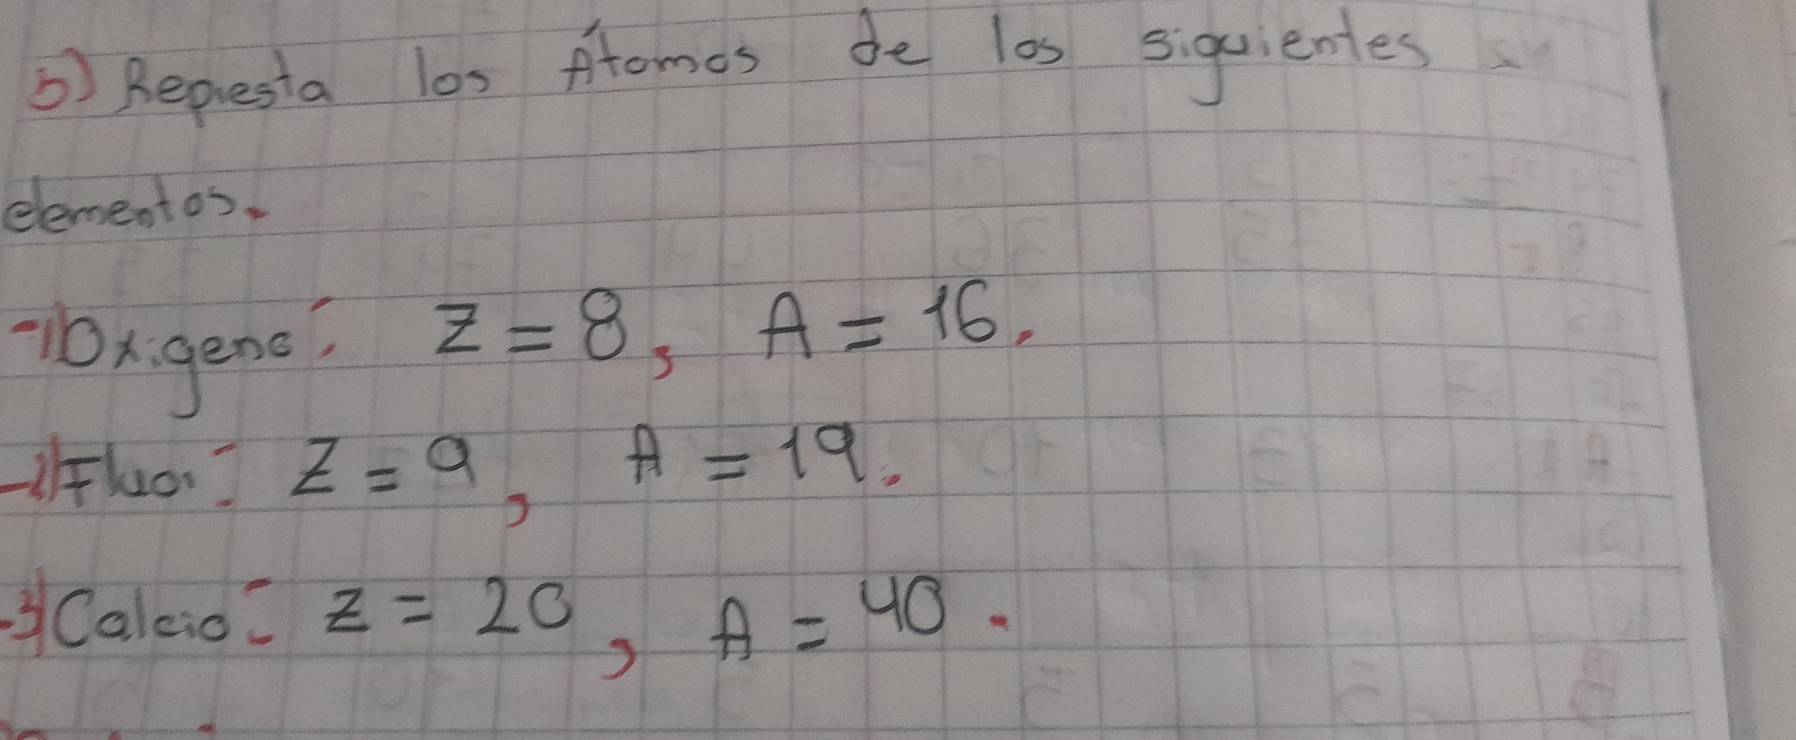 5) Repiesta los Átomos de los siguientes
elementos.
-1) Oxigeno: Z = 8, A = 16.
-2) Fluor: Z = 9, A = 19.
-3) Calcio: Z = 20, A = 40.